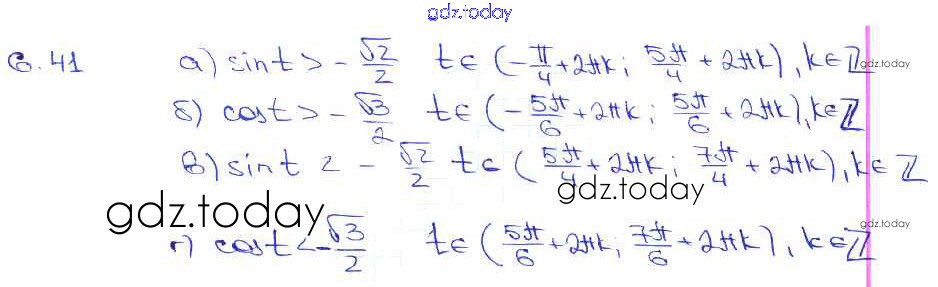 gdz.today
6.41 а) sint > -√2/2 t∈(-π/4+2πk; 5π/4+2πk), k∈ℤ
gdz.today
б) cost > -√3/2 t∈(-5π/6+2πk; 5π/6+2πk), k∈ℤ
в) sint < -√2/2 t∈(5π/4+2πk; 7π/4+2πk), k∈ℤ
gdz.today
gdz.today
г) cost < -√3/2 t∈(5π/6+2πk; 7π/6+2πk), k∈ℤ
gdz.today